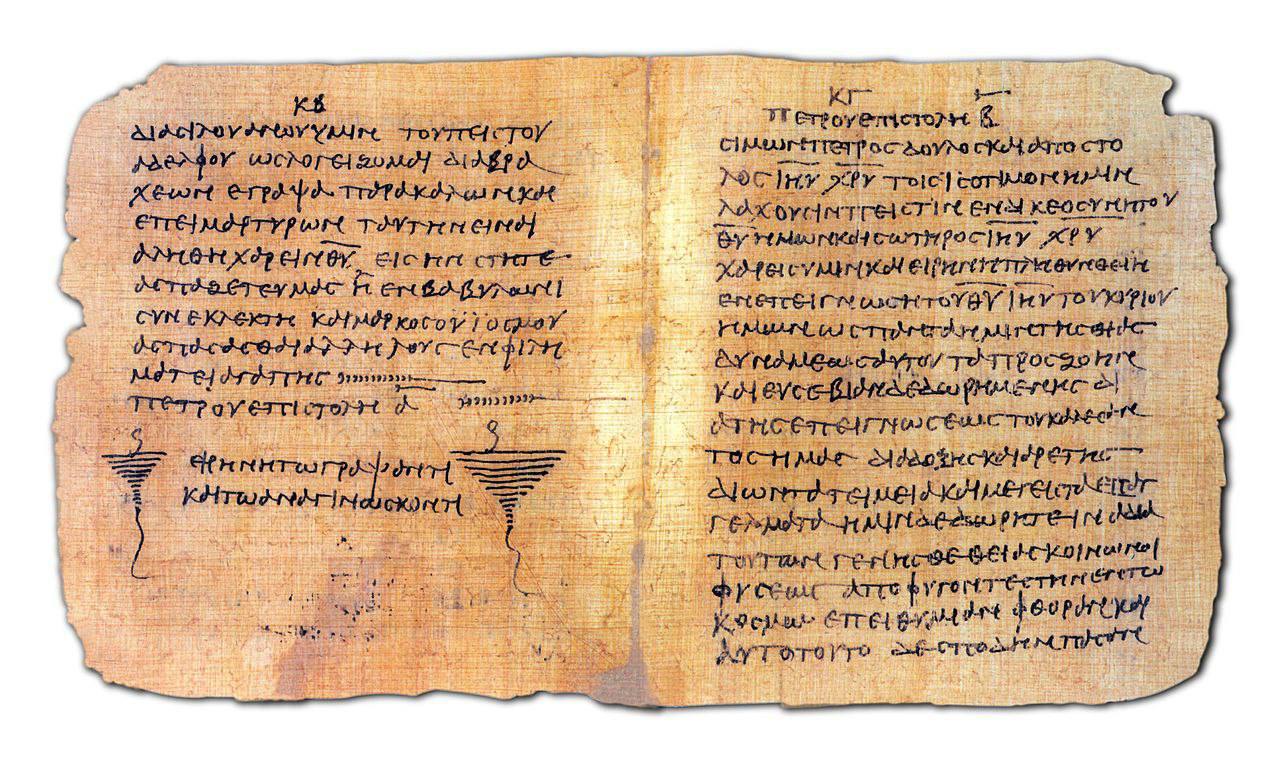 ΚΒ
ΔΙΑϹΙΛΟΥΑΝΟΥΥΜΙΝ ΤΟΥΠΕΙϹΤΟΥ
ΑΔΕΛΦΟΥ ΩϹΛΟΓΕΙΖΟΜΑΙ ΔΙΑΒΡΑ
ΧΕΩΝ ΕΓΡΑΨΑ ΠΑΡΑΚΑΛΩΝΚΑΙ
ΕΠΕΙΜΑΡΤΥΡΩΝ ΤΑΥΤΗΝΕΙΝΑΙ
ΑΛΗΘΗΧΑΡΕΙΝΘ̅Υ̅ ΕΙϹΗΝ ϹΤΗΤΕ
ΑϹΠΑΖΕΤΕΥΜΑϹ Η ΕΝΒΑΒΥΛΩΝΙ
ϹΥΝΕΚΛΕΚΤΗ ΚΑΙΜΑΡΚΟϹΟΥΪΟϹΜΟΥ
ΑϹΠΑϹΑϹΘΑΙΑΛΛΗΛΟΥϹ ΕΝΦΙΛΗ
ΜΑΤΕΙΑΓΑΠΗϹ
ΠΕΤΡΟΥΕΠΙϹΤΟΛΗ Α̅
ΕΙΡΗΝΗΤΩΓΡΑΨΑΝΤΙ
ΚΑΙΤΩΑΝΑΓΙΝΩϹΚΟΝΤΙ
ΚΓ
ΠΕΤΡΟΥΕΠΙϹΤΟΛΗ Β̅
ϹΙΜΩΝΠΕΤΡΟϹΔΟΥΛΟϹΚΑΙΑΠΟϹΤΟ
ΛΟϹ Ι̅Η̅Υ̅ Χ̅Ρ̅Υ̅ ΤΟΙϹΙϹΟΤΙΜΟΝΗΜΙΝ
ΛΑΧΟΥϹΙΝΠΕΙϹΤΙΝ ΕΝΔΙΚΕΟϹΥΝΗΤΟΥ
Θ̅Υ̅ΗΜΩΝΚΑΙϹΩΤΗΡΟϹ Ι̅Η̅Υ̅ Χ̅Ρ̅Υ̅
ΧΑΡΕΙϹΥΜΙΝΚΑΙΕΙΡΗΝΗΠΛΗΘΥΝΘΕΙΗ
ΕΝΕΠΕΙΓΝΩϹΗΤΟΥΘ̅Υ̅ Ι̅Η̅Υ̅ ΤΟΥΚΥΡΙΟΥ
ΗΜΩΝ ΩϹΠΑΝΤΑΗΜΙΝΤΗϹΘΙΑϹ
ΔΥΝΑΜΕΩϹΑΥΤΟΥ ΤΑΠΡΟϹΖΟΗΝ
ΚΑΙΕΥϹΕΒΙΑΝΔΕΔΩΡΗΜΕΝΗϹ ΔΙ
ΑΤΗϹΕΠΕΙΓΝΩϹΕΩϹ ΤΟΥΚΑΛΕϹΑΝ
ΤΟϹΗΜΑϹ ΔΙΑΔΟΞΗϹΚΑΙΑΡΕΤΗϹ
ΔΙΩΝΤΑΤΕΙΜΕΙΑΚΑΙΜΕΓΕΙϹΤΑΕΠΑΓ
ΓΕΛΜΑΤΑ ΗΜΙΝΔΕΔΩΡΗΤΕΙΝΑΔΙΑ
ΤΟΥΤΩΝ ΓΕΝΗϹΘΕΘΕΙΑϹΚΟΙΝΩΝΟΙ
ΦΥϹΕΩϹ ΑΠΟΦΥΓΟΝΤΕϹΤΗΝΕΝΤΩ
ΚΟϹΜΩ ΕΠΕΙΘΥΜΙΑΝ ΦΘΟΡΑΝΚΑΙ
ΑΥΤΟΤΟΥΤΟ ΔΕϹΠΟΔΗΝΠΑϹΑΝ